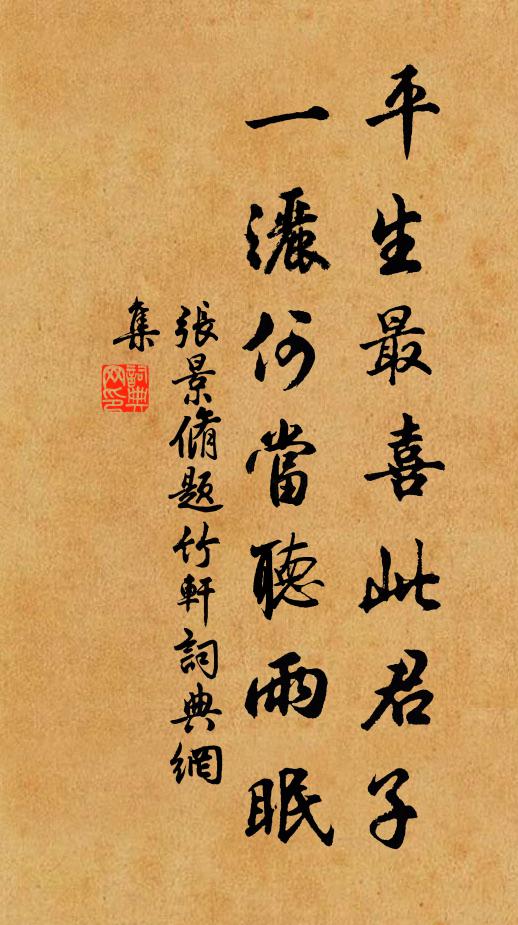 平生最喜此君子
一灑何當聽雨眠
張景脩題竹軒詞典網
集
詞典網印